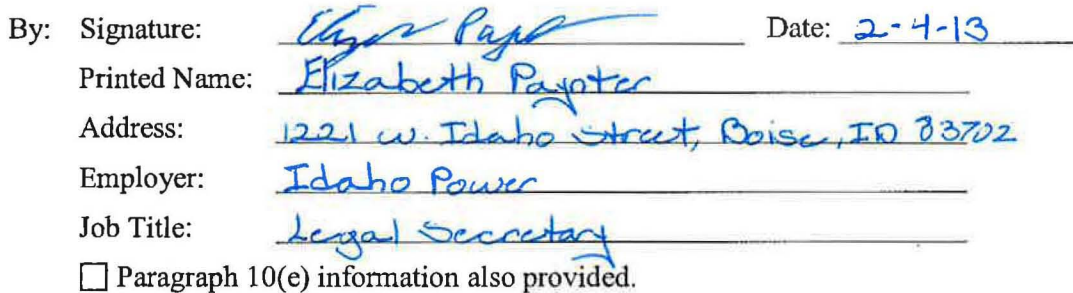 By: Signature: Date: 2-4-13
Printed Name: Elizabeth Paynter
Address: 1221 W. Idaho Street, Boise, ID 83702
Employer: Idaho Power
Job Title: Legal Secretary
☐ Paragraph 10(e) information also provided.